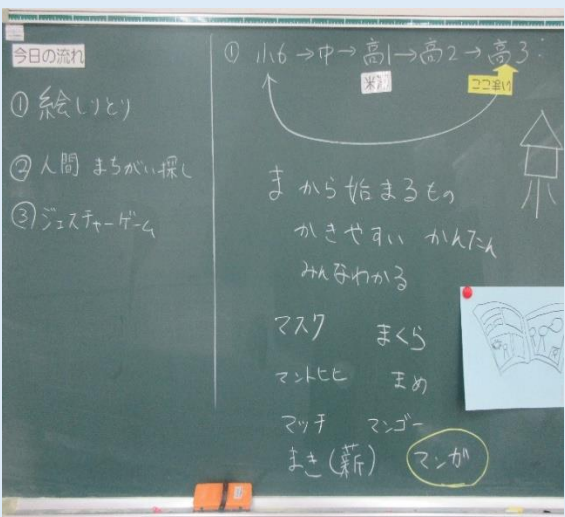 今日の流れ
① 絵しりとり
② 人間 まちがい探し
③ ジェスチャーゲーム
① 小6→中→高1→高2→高3
まから始まるもの
かきやすい かんたん
みんなわかる
マスク まくら
マントヒヒ まめ
マッチ マンゴー
まき(薪) マンガ